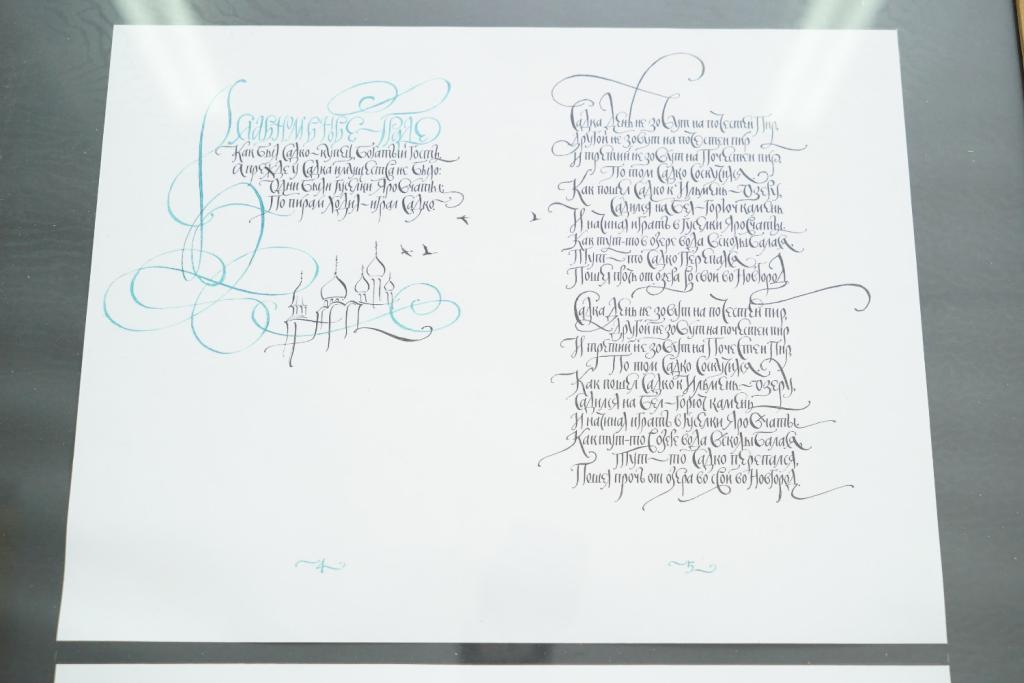 В славном Нове-граде
Как был Садко-купец, богатый гость.
А прежде у Садка имущества не было:
Одни были гусёлки яровчаты;
По пирам ходил-играл Садко.
~4~
Садка день не зовут на почестей пир,
Другой не зовут на почестен пир
И третий не зовут на почестен пир,
По том Садко соскучился.
Как пошёл Садко к Ильмень-озеру,
Садился на бел-горюч камень
И начинал играть в гусёлки яровчаты.
Как тут-то в озере вода всколыбалася,
Тут-то Садко перепался,
Пошел прочь от озера во свой во Новгород.
Садка день не зовут на почестен пир,
Другой не зовут на почестен пир
И третий не зовут на почестен пир,
По том Садко соскучился.
Как пошёл Садко к Ильмень-озеру,
Садился на бел-горюч камень
И начинал играть в гусёлки яровчаты.
Как тут-то в озере вода всколыбалася,
Тут-то Садко перепался,
Пошел прочь от озера во свой во Новгород.
~5~